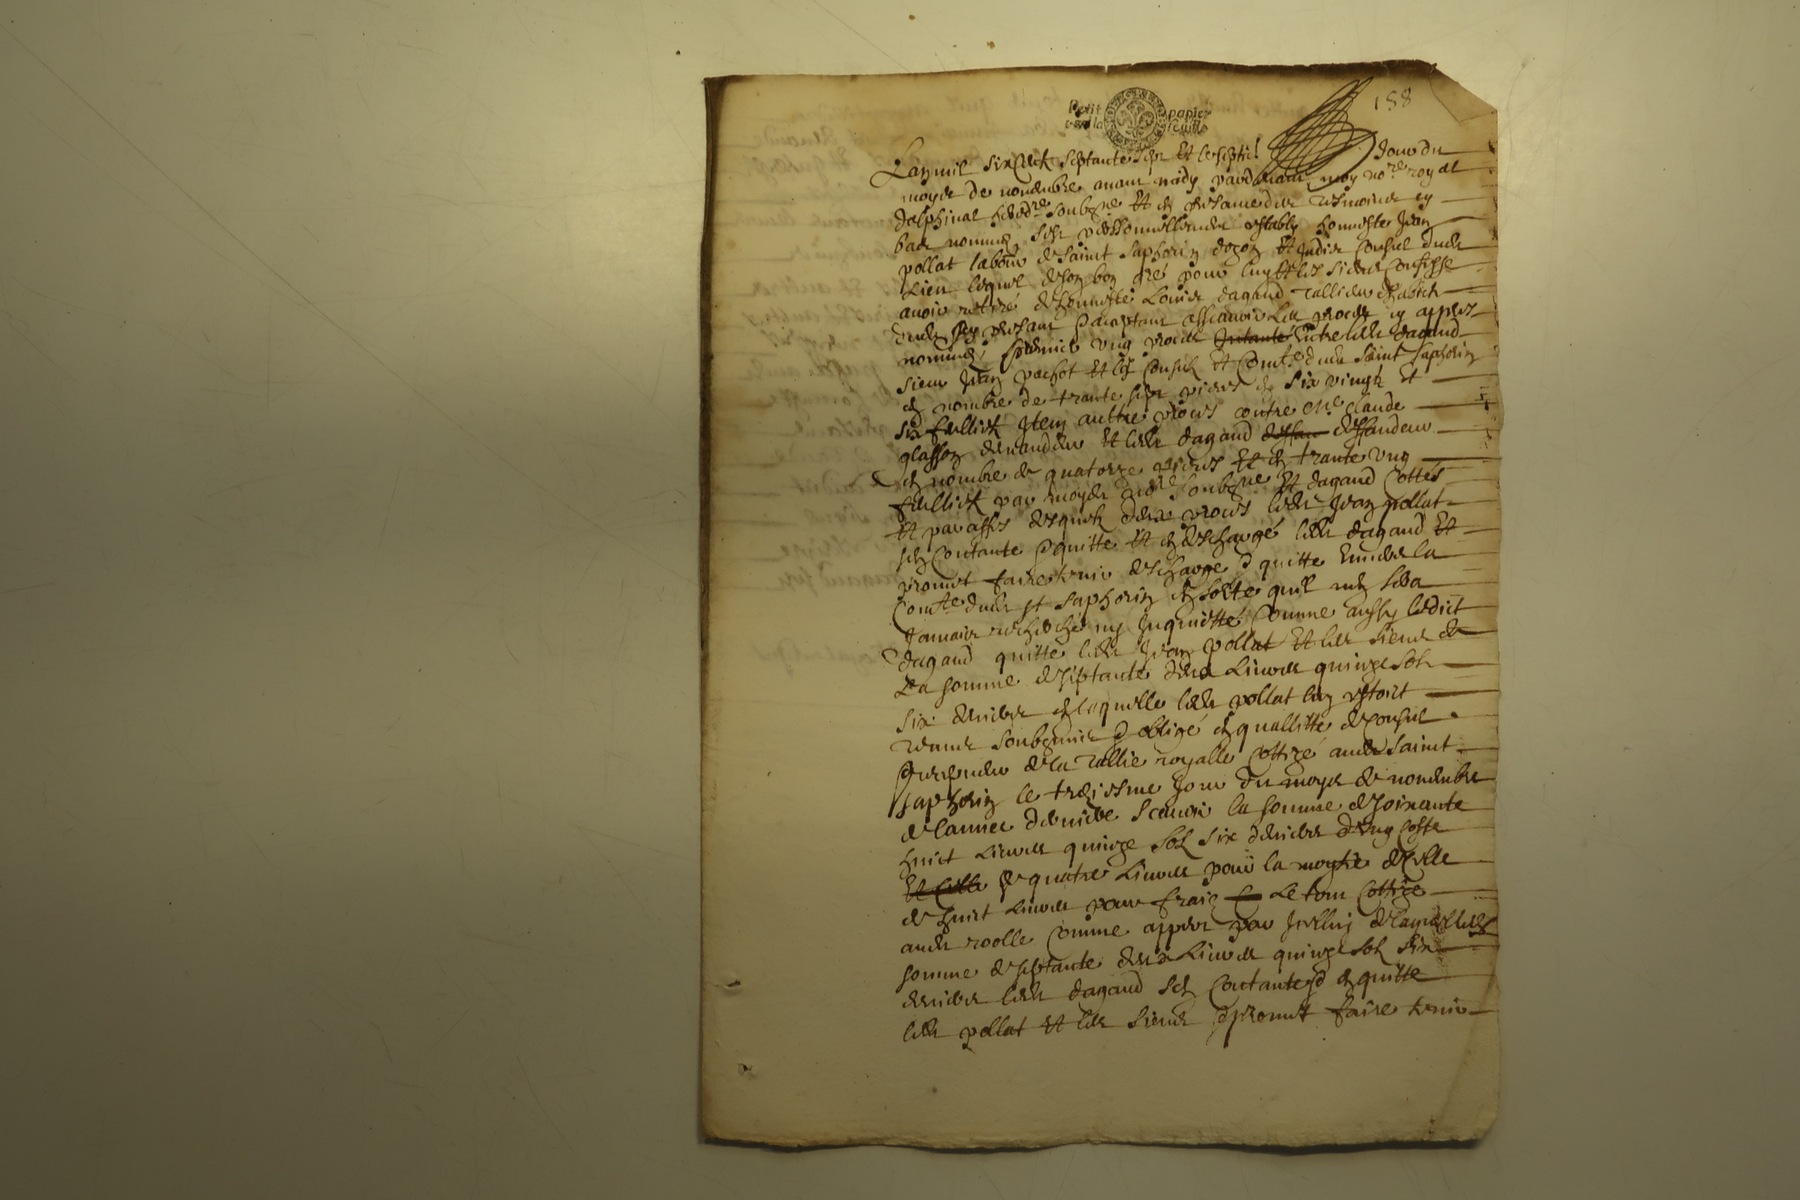 158
Petit papier
la feuille
Lan mil six cent septante sept et le septie jour du
moys de novembre avant midy pardevant moy nore royal
dalphinal heredre soubsne et en presance des tesmoins en
bas nommes sest personnellement estably honneste Jean
pollat labour de saint saphorin dozon et Judis consul dudt
lieu lequel de son bon gré pour luy et les siens confesse
avoir retiré dhonneste Louis dagand
present acceptant assavoir les proces cy appres
nommes premier ung proces entre ledt dagand
sieur Jean pachot et les consuls et Comte dudt saint saphorin
en nombre de trante sept pieces en six vingt et
six fulliets Item aultre proces contre Me claude
glasson demandeur et ledt dagand deffandeur
en nombre de quatorze pieces et en trante ung
fulliets par moyd nore soubsne et dagand cottés
et paraffés desquels deux proces ledt Jean pollat
sen contante quitte et en descharge ledt dagand et
promet faire tenir descharge quitte envers la
Comte dudt st saphorin en sorte quil nen sera
Jamais recherché ny Inquietté comme aussy ledict
dagand quitte ledt Jean pollat et les siens de
la somme de septante deux livres quinze sols
six deniers en laquelle ledt pollat luy estoict
obligé en quallitté de consul
de la tallie royalle cottizé audt saint
saphorin le treissme jour du moys de novembre
de lannee derniere scavoir la somme de soixante
huict livres quinze sols six deniers dung costé
et de quatre livres pour la moytie de celle
de huict livres pour frais le tout cottizé
audt roolle comme appert par Icelluy de laquelle
somme de septante deux livres quinze sols six
deniers ledt dagand sen contante en quitte
ledt pollat et les siens promet faire tenir